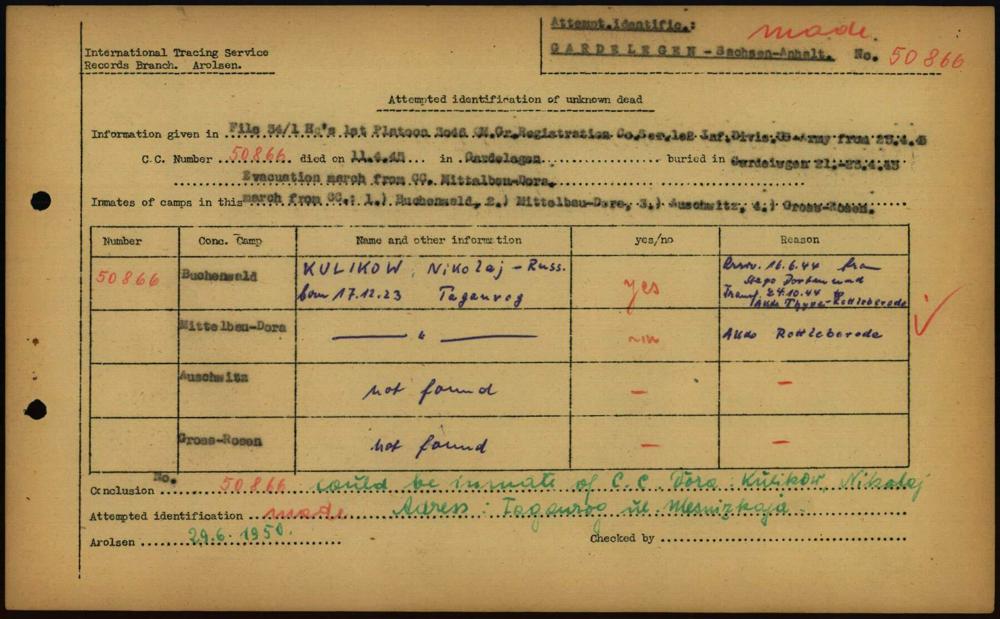 International Tracing Service
Records Branch. Arolsen.
Attempt.Identific.: made
GARDELEGEN - Sachsen-Anhalt. No. 50866
Attempted identification of unknown dead
Information given in File 54/1 Hq's 1st Platoon Gr.Registration Co. Inf.Divis. Army from
C.C. Number 50866 died on 11.4.45 in Gardelegen buried in Gardelegen 21.-23.4.45
Evacuation march from CC. Mittelbau-Dora.
Inmates of camps in this march from CC.: 1.) Buchenwald, 2.) Mittelbau-Dora, 3.) Auschwitz, 4.) Gross-Rosen.
Number Conc. Camp Name and other information yes/no Reason
50866 Buchenwald KULIKOW, Nikolaj - Russ. yes 16.6.44 from
born 17.12.23 Taganrog Stapo Dortmund
Transf. 24.10.44 to
Akdo Thyra-Rottleberode
Mittelbau-Dora — " — Akdo Rottleberode
Auschwitz not found — —
Gross-Rosen not found — —
Conclusion No. 50866 could be inmate of C.C. Dora Kulikow, Nikolaj
Attempted identification made Adress: Taganrog ul.
Arolsen 29.6.1950. Checked by